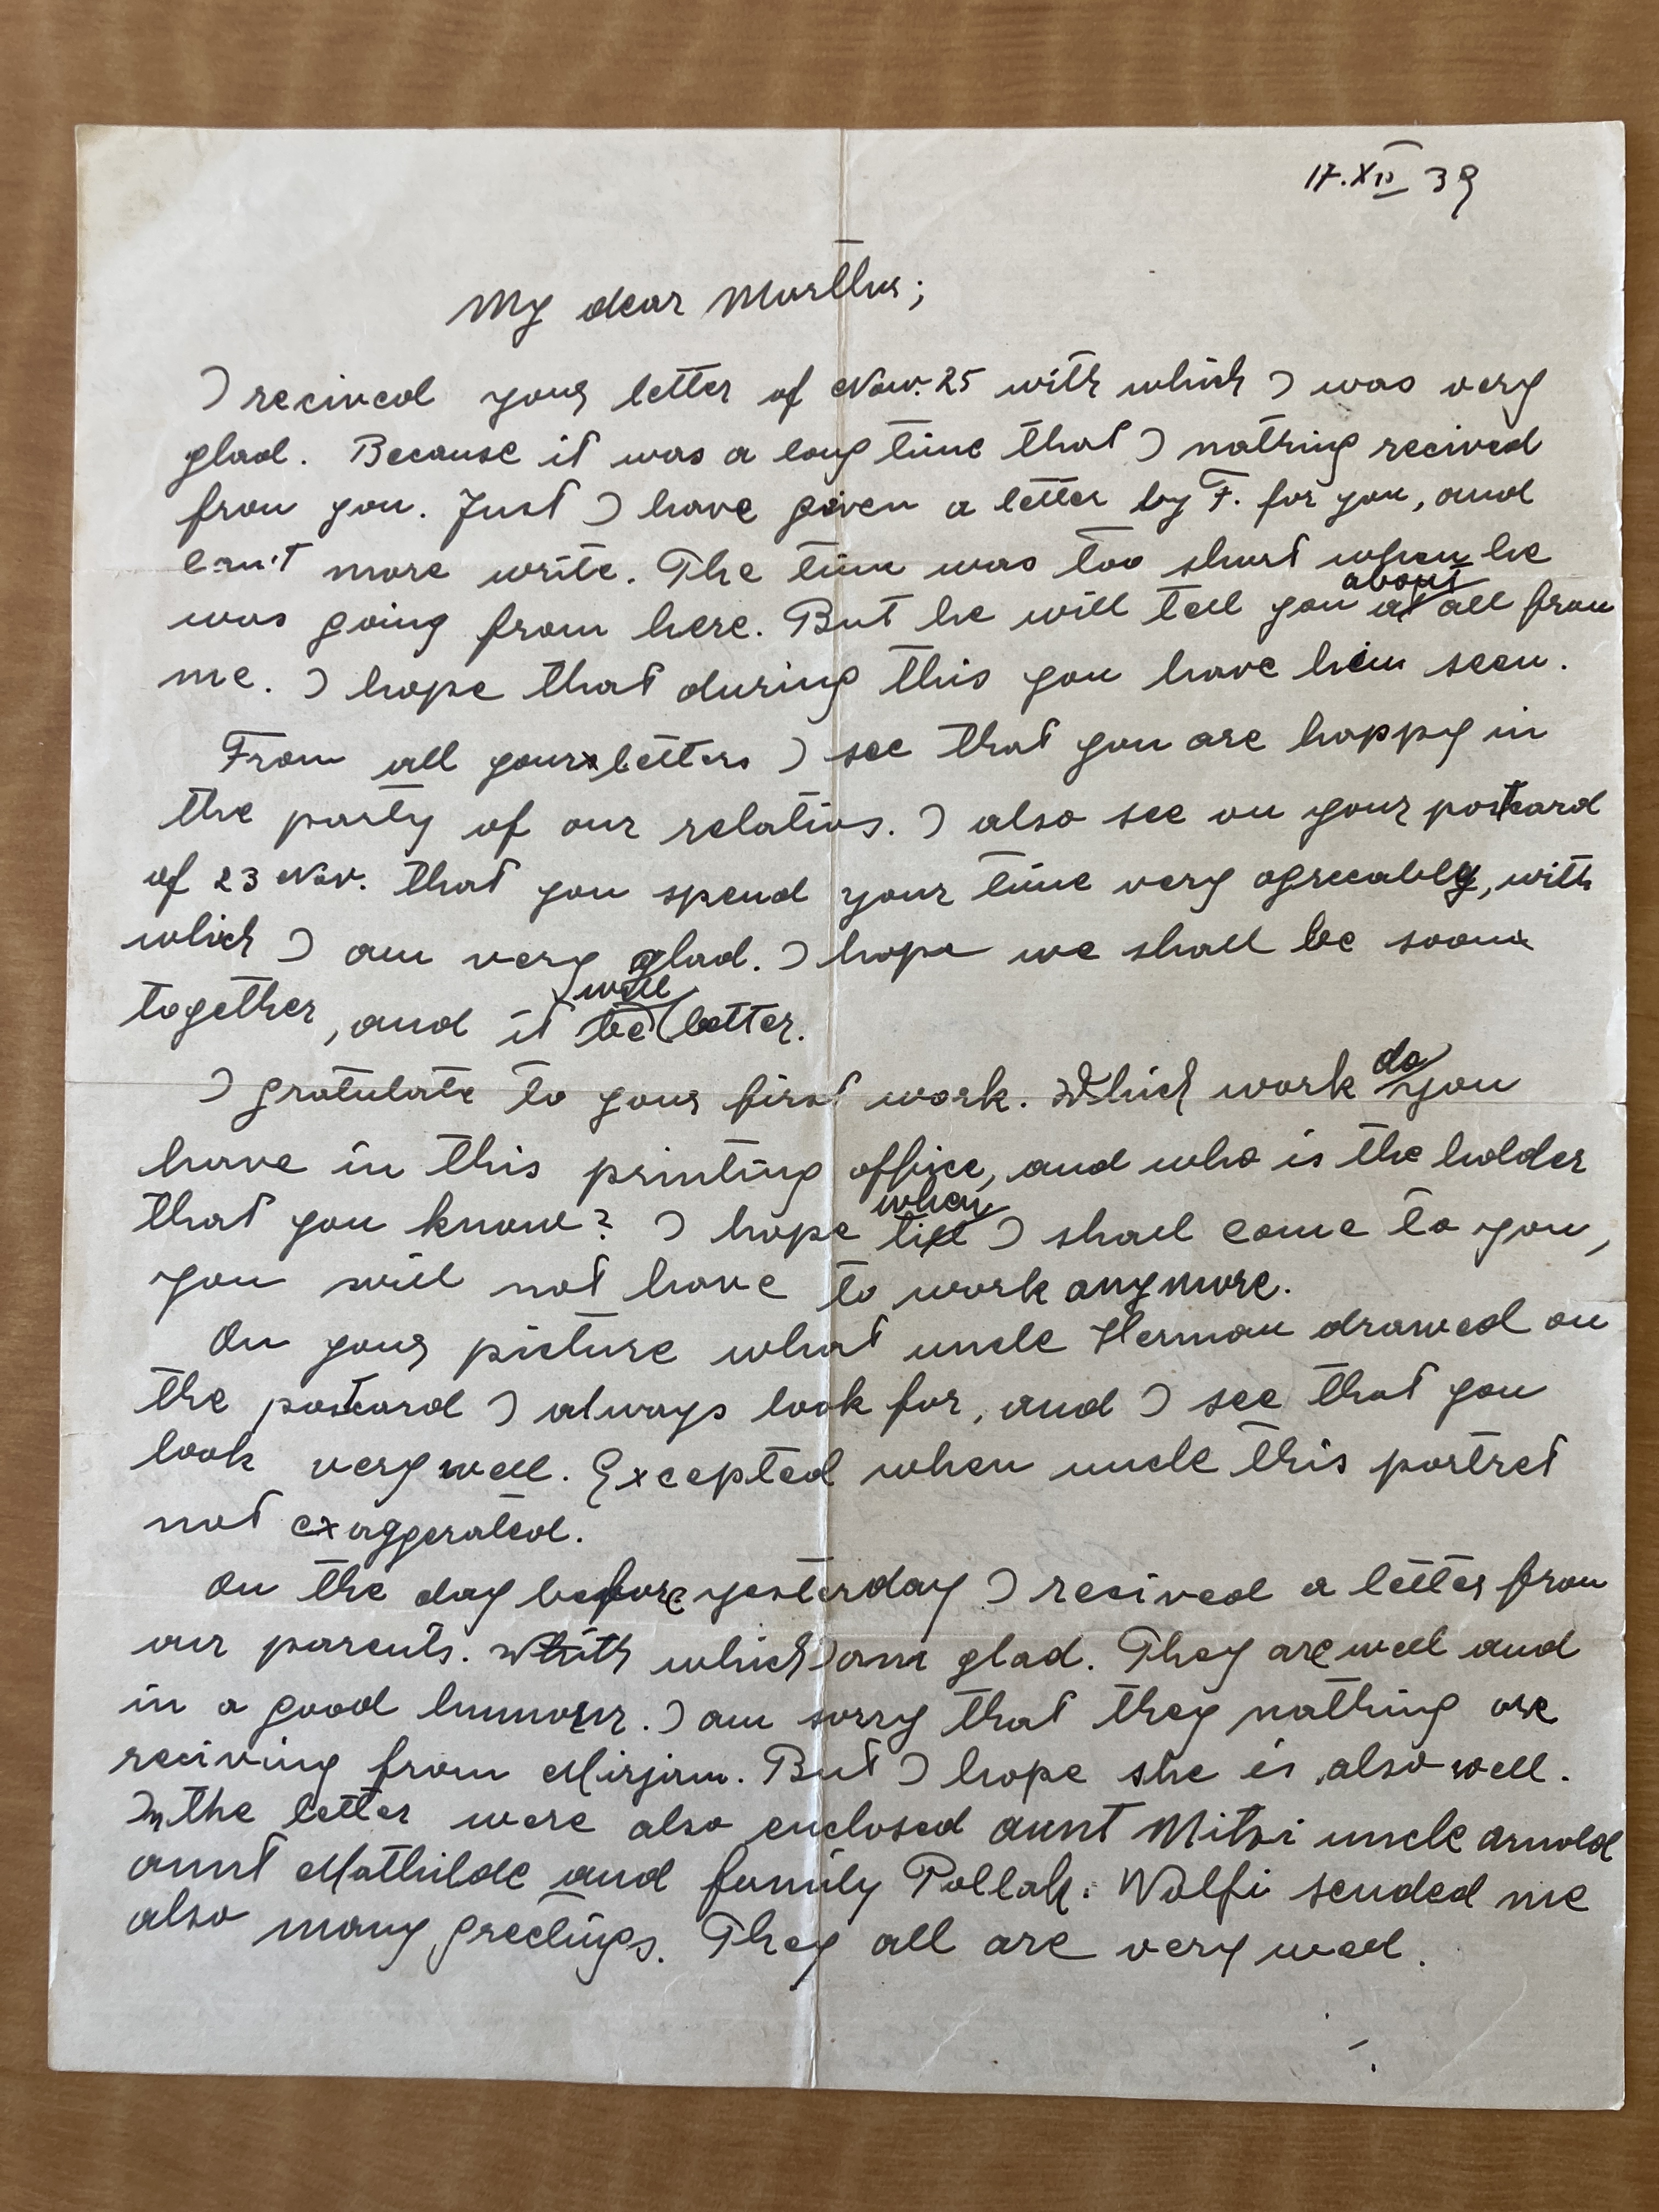 17.XII 39
My dear Martha;
I recived your letter of Nov. 25 with which I was very
glad. Because it was a long time that I nothing recived
from you. Just I have given a letter by F. for you, and
can't more write. The time was too short when he
was going from here. But he will tell you about all from
me. I hope that during this you have him seen.
From all your letters I see that you are happy in
the party of our relativs. I also see on your postcard
of 23 Nov. that you spend your time very agreeably, with
which I am very glad. I hope we shall be soon
together, and it will be better.
I gratulate to your first work. Which work do you
have in this printing office, and who is the holder
that you know? I hope when I shall come to you,
you will not have to work anymore.
On your picture what uncle Herman drawed on
the postcard I always look for, and I see that you
look very well. Excepted when uncle this portret
not exaggerated.
On the day before yesterday I recived a letter from
our parents. With which I am glad. They are well and
in a good humour. I am sorry that they nothing are
reciving from Mirjam. But I hope she is also well.
In the letter were also enclosed aunt Mitzi uncle Arnold
aunt Mathilde and family Pollak. Wolfi sended me
also many greetings. They all are very well.